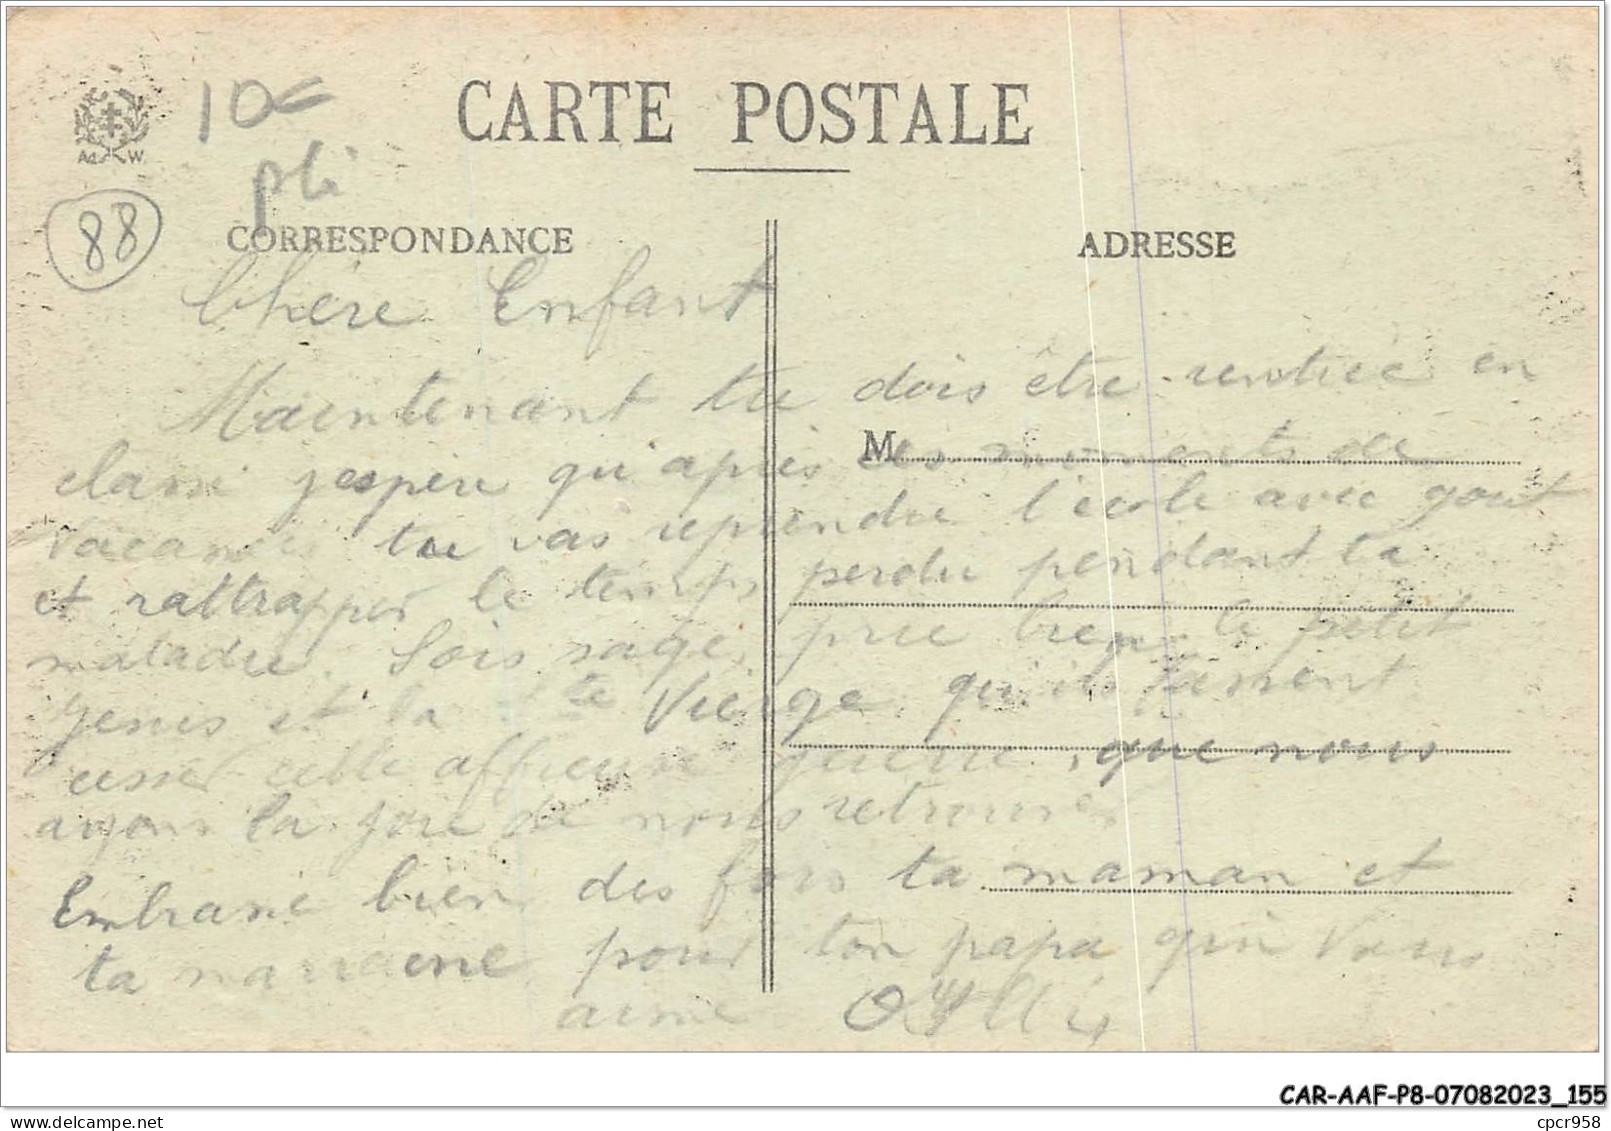 10€
pli
88
A. W.
CARTE POSTALE
CORRESPONDANCE
ADRESSE
M
Chère Enfant
Maintenant tu dois être rentrée en
classe j'espère qu'après ces moments de
vacances tu vas reprendre l'école avec gout
et rattrapper le temps perdu pendant ta
maladie. Sois sage, prie bien le petit
Jesus et la Ste Vierge qu'ils fassent
cesser cette affreuse guerre, que nous
ayons la joie de nous retrouver
Embrasse bien des fois ta maman et
ta marraine pour ton papa qui vous
aime
CAR-AAF-P8-07082023_155
www.delcampe.net
cpcr958